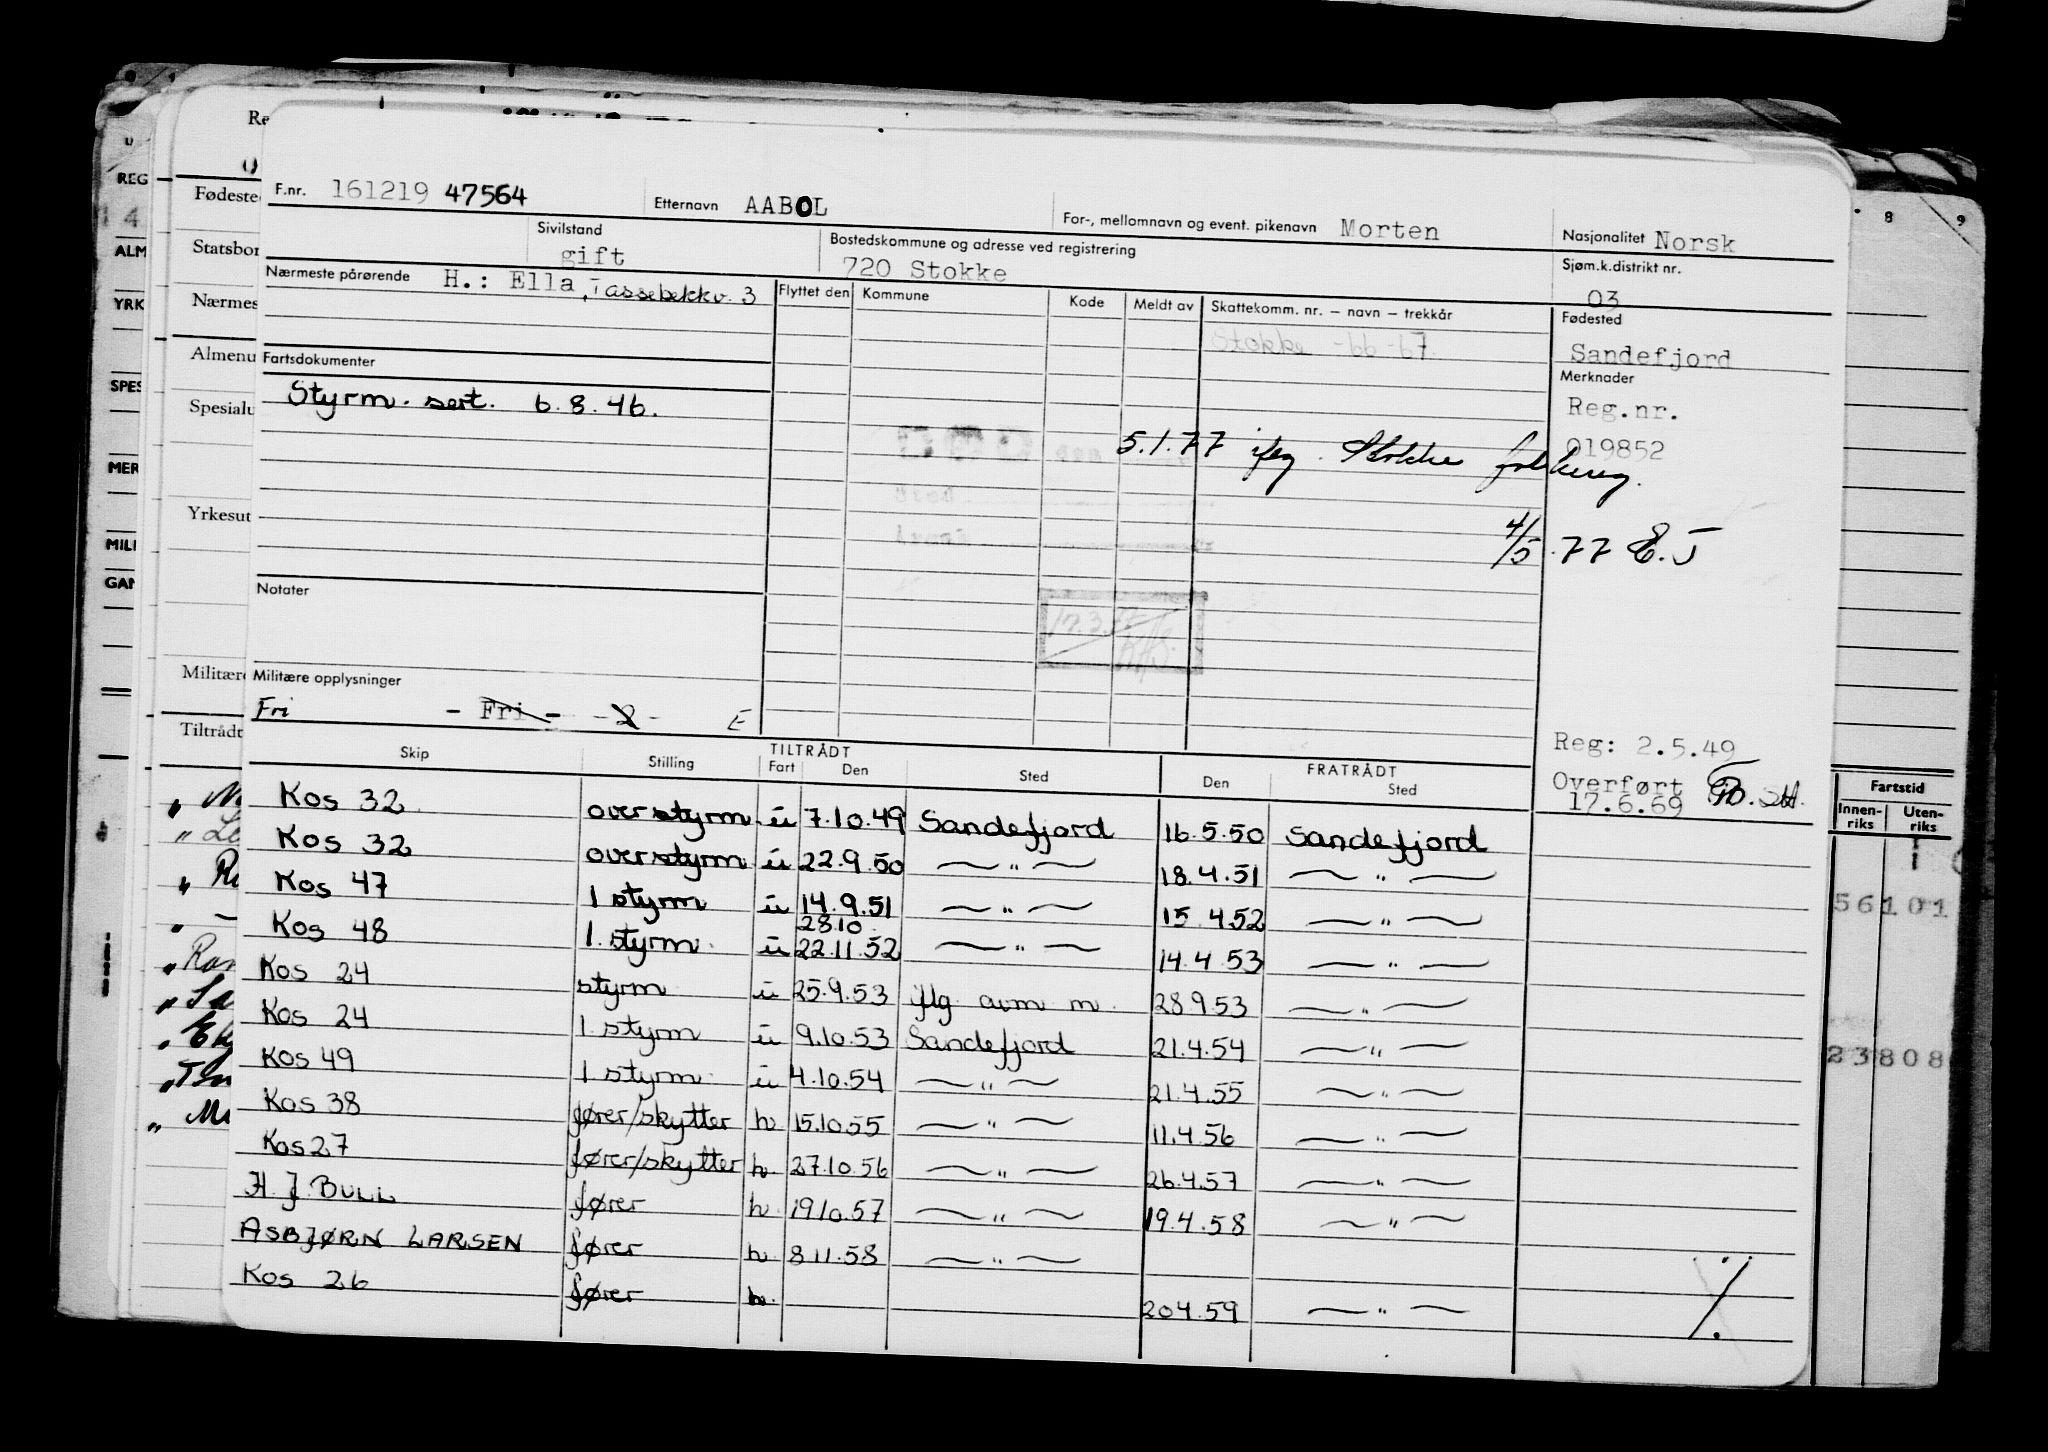 F.nr. 161219 47564 Etternavn AABOL For-, mellomnavn og event. pikenavn Morten Nasjonalitet Norsk
Sivilstand gift Bostedskommune og adresse ved registrering 720 Stokke Sjøm.k.distrikt nr. 03
Nærmeste pårørende H.: Ella, Tassebekkv. 3
Flyttet den Kommune Kode Meldt av Skattekomm. nr. – navn – trekkår
Stokke -66-67
Fødested
Sandefjord
Merknader
Reg.nr.
019852
Fartsdokumenter
Styrm. sert. 6.8.46.
5.1.77 iflg. Stokke folkereg.
4/5.77 E.J
Notater
17.3.77
Militære opplysninger
Fri - Fri - -2- E
Reg: 2.5.49
Overført
17.6.69
Skip Stilling TILTRÅDT Fart Den Sted FRATRÅDT Den Sted
Kos 32 overstyrm. u 7.10.49 Sandefjord 16.5.50 Sandefjord
Kos 32 overstyrm u 22.9.50 — " — 18.4.51 — " —
Kos 47 1 styrm u 14.9.51 — " — 15.4.52 — " —
28.10
Kos 48 1. styrm. u 22.11.52 — " — 14.4.53 — " —
Kos 24 styrm u 25.9.53 iflg. avm m. 28.9.53 — " —
Kos 24 1 styrm u 9.10.53 Sandefjord 21.4.54 — " —
Kos 49 1 styrm. u 4.10.54 — " — 21.4.55 — " —
Kos 38 fører/skytter h 15.10.55 — " — 11.4.56 — " —
Kos 27 fører/skytter h. 27.10.56 — " — 26.4.57 — " —
H. J. BULL fører h. 19.10.57 — " — 19.4.58 — " —
ASBJØRN LARSEN fører h 8.11.58 — " —
Kos 26 fører h. 20.4.59 — " —
Re
Fødeste
Statsbor
Nærmes
Almenu
Spesialu
Yrkesut
Militære
Tiltrådt
REG
ALM
YRK
SPES
MER
MILI
GAN
8 9
Fartstid
Innen-riks Uten-riks
56101
23808